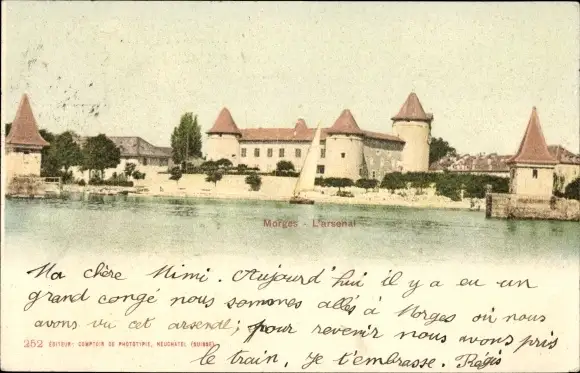 Morges - L'arsenal
Ma chère Mimi. Aujourd'hui il y a eu un
grand congé nous sommes allés à Morges où nous
avons vu cet arsenal; pour revenir nous avons pris
le train, Je t'embrasse. Régis
252 EDITEUR: COMPTOIR DE PHOTOTYPIE, NEUCHATEL (SUISSE)